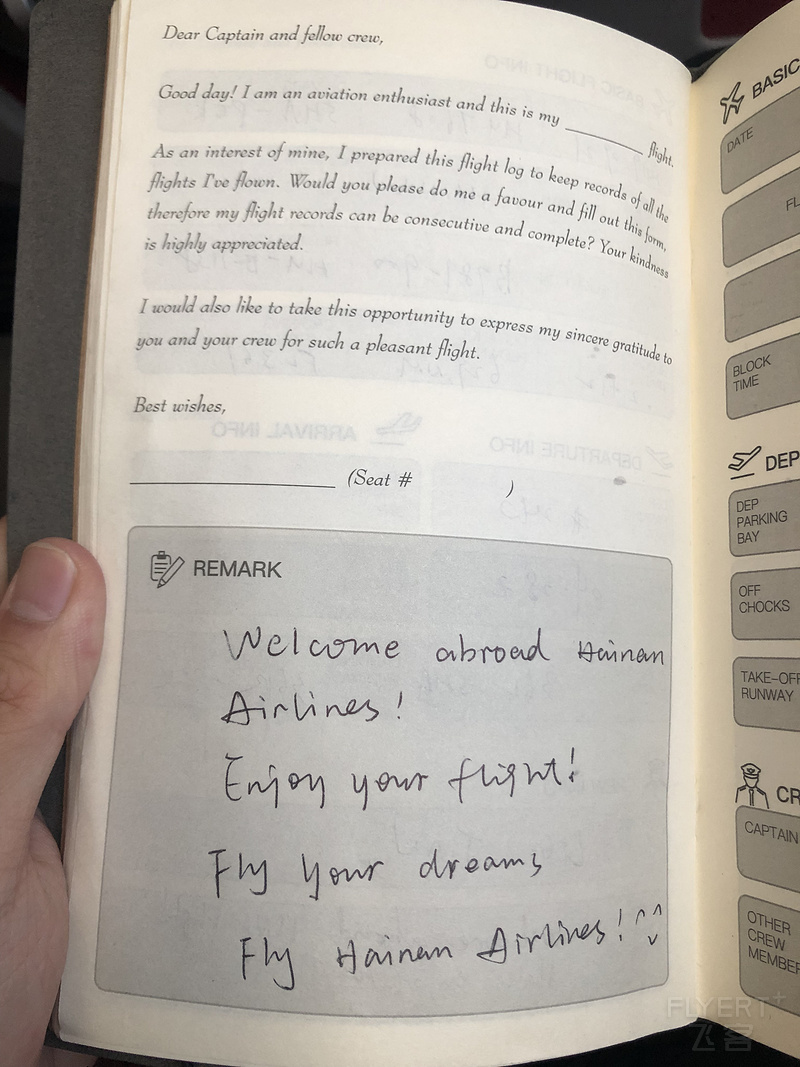 Dear Captain and fellow crew,
Good day! I am an aviation enthusiast and this is my __________ flight.
As an interest of mine, I prepared this flight log to keep records of all the
flights I've flown. Would you please do me a favour and fill out this form,
therefore my flight records can be consecutive and complete? Your kindness
is highly appreciated.
I would also like to take this opportunity to express my sincere gratitude to
you and your crew for such a pleasant flight.
Best wishes,
____________________ (Seat # )
REMARK
Welcome abroad Hainan
Airlines!
Enjoy your flight!
Fly your dreams
Fly Hainan Airlines! ^v^
BASIC
DATE
FL
BLOCK
TIME
DEP
DEP
PARKING
BAY
OFF
CHOCKS
TAKE-OFF
RUNWAY
CR
CAPTAIN
OTHER
CREW
MEMBER
FLYERT+
飞客